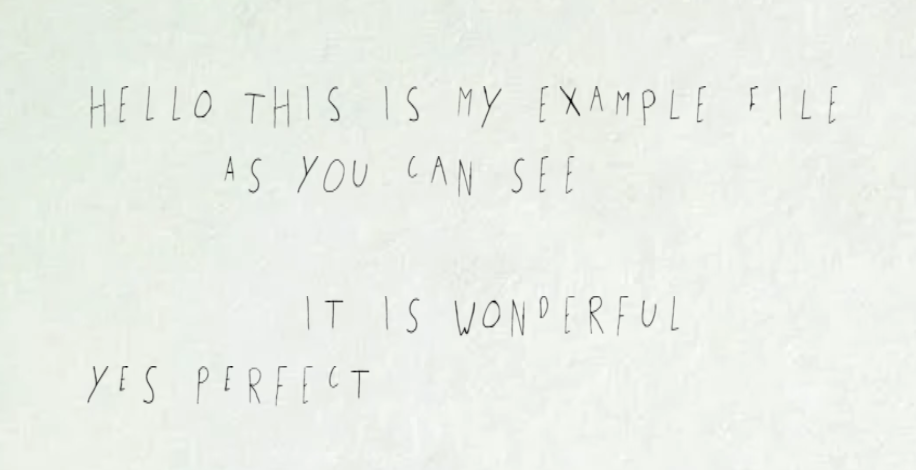 HELLO THIS IS MY EXAMPLE FILE
AS YOU CAN SEE
IT IS WONDERFUL
YES PERFECT